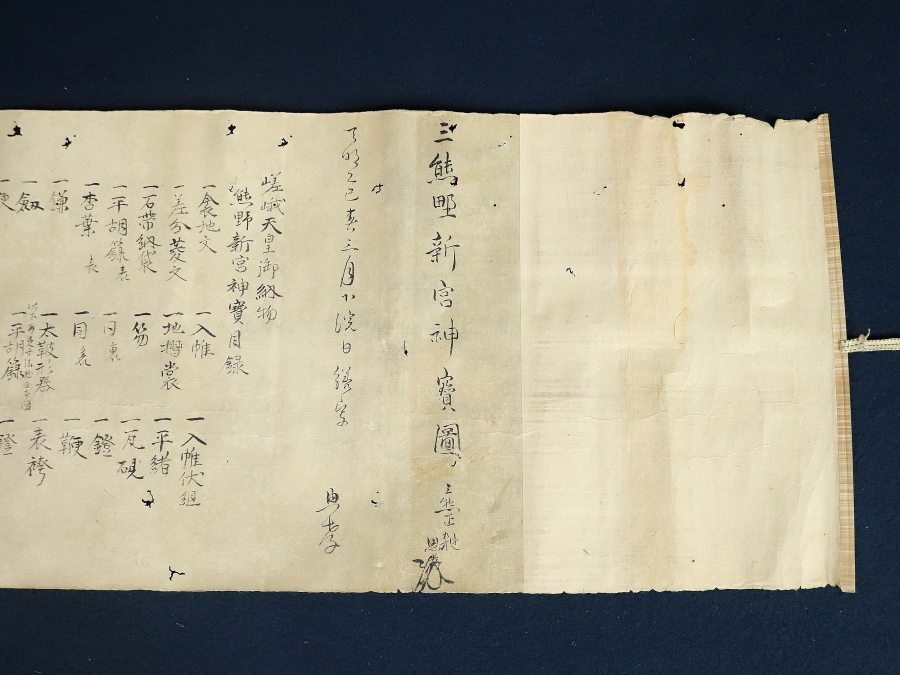 三熊野新宮神寶圖
天明乙巳春三月下浣日謄写
典孝
嵯峨天皇御納物
熊野新宮神寶目録
一衾地文 一入帷 一入帷伏組
一差分菱文 一地摺裳 一平緒
一石帯納袋 一笏 一瓦硯
一平胡籙表 一同裏 一鐙
一杏葉表 一同裏 一鞭
一鎌 一太鼓形器 一表袴
一劔 一平胡籙 一鐙